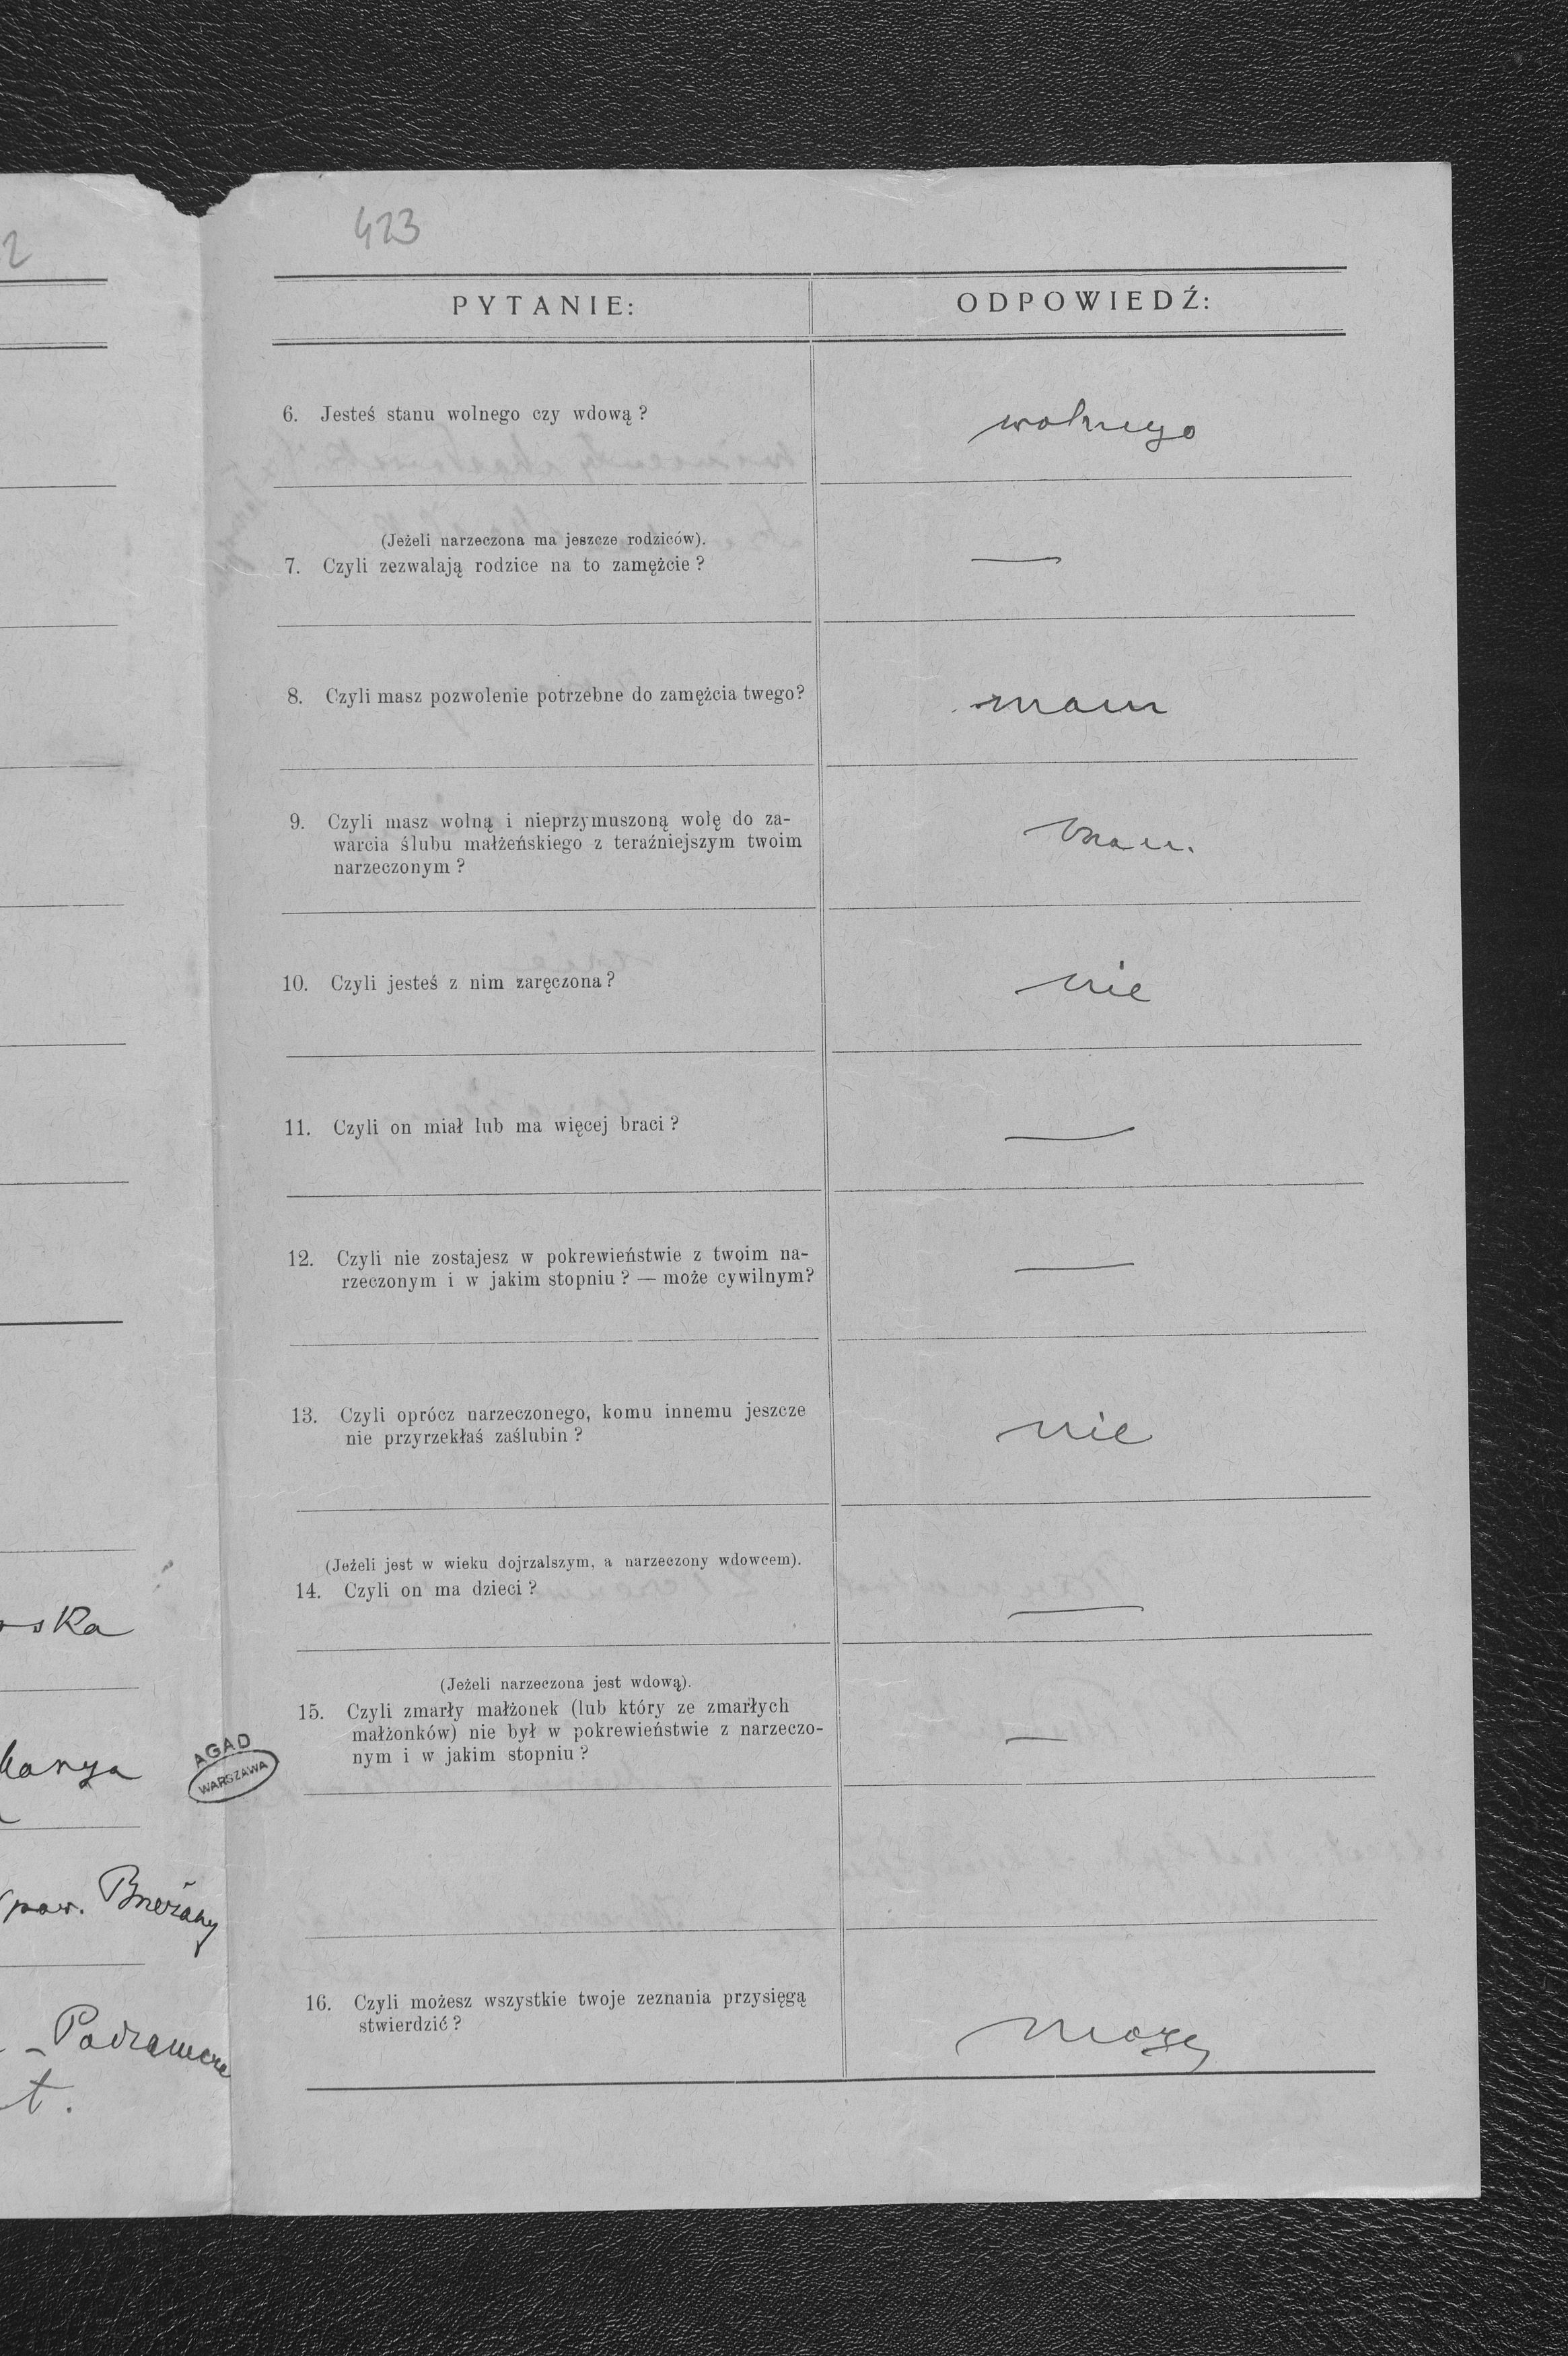 2
423
PYTANIE:
ODPOWIEDŹ:
6. Jesteś stanu wolnego czy wdową?
wolnego
(Jeżeli narzeczona ma jeszcze rodziców).
7. Czyli zezwalają rodzice na to zamężcie?
—
8. Czyli masz pozwolenie potrzebne do zamężcia twego?
mam
9. Czyli masz wolną i nieprzymuszoną wolę do za-
warcia ślubu małżeńskiego z teraźniejszym twoim
narzeczonym?
mam.
10. Czyli jesteś z nim zaręczona?
nie
11. Czyli on miał lub ma więcej braci?
—
12. Czyli nie zostajesz w pokrewieństwie z twoim na-
rzeczonym i w jakim stopniu? — może cywilnym?
—
13. Czyli oprócz narzeczonego, komu innemu jeszcze
nie przyrzekłaś zaślubin?
nie
(Jeżeli jest w wieku dojrzalszym, a narzeczony wdowcem).
14. Czyli on ma dzieci?
—
(Jeżeli narzeczona jest wdową).
15. Czyli zmarły małżonek (lub który ze zmarłych
małżonków) nie był w pokrewieństwie z narzeczo-
nym i w jakim stopniu?
—
16. Czyli możesz wszystkie twoje zeznania przysięgą
stwierdzić?
mogę
ska
AGAD
WARSZAWA
pow. Brzeżany
t.